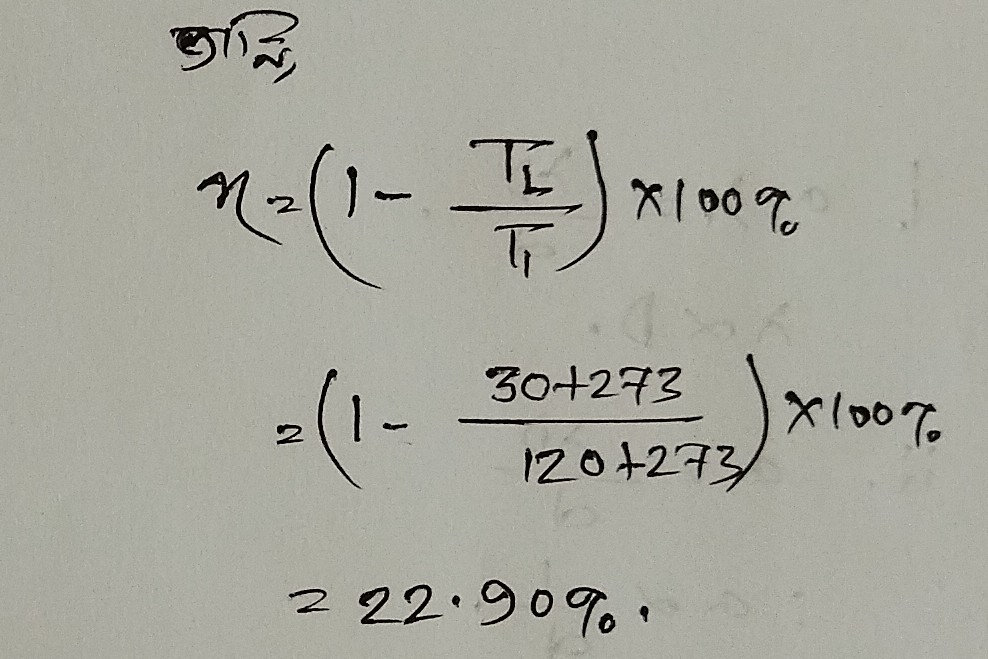 জানি,
η = (1 - T₂/T₁) × 100%
= (1 - 30+273/120+273) × 100%
= 22.90%.